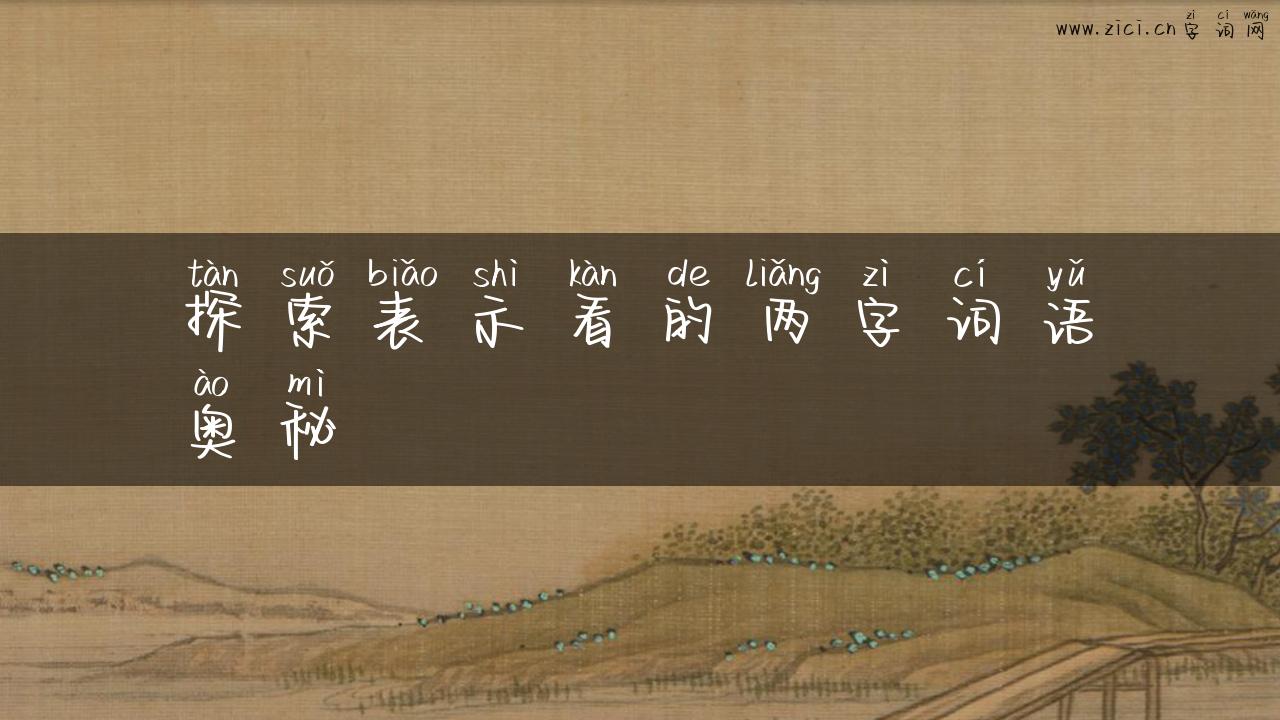 zì cí wǎng
www.zici.cn字词网
tàn suǒ biǎo shì kàn de liǎng zì cí yǔ
探索表示看的两字词语
ào mì
奥秘